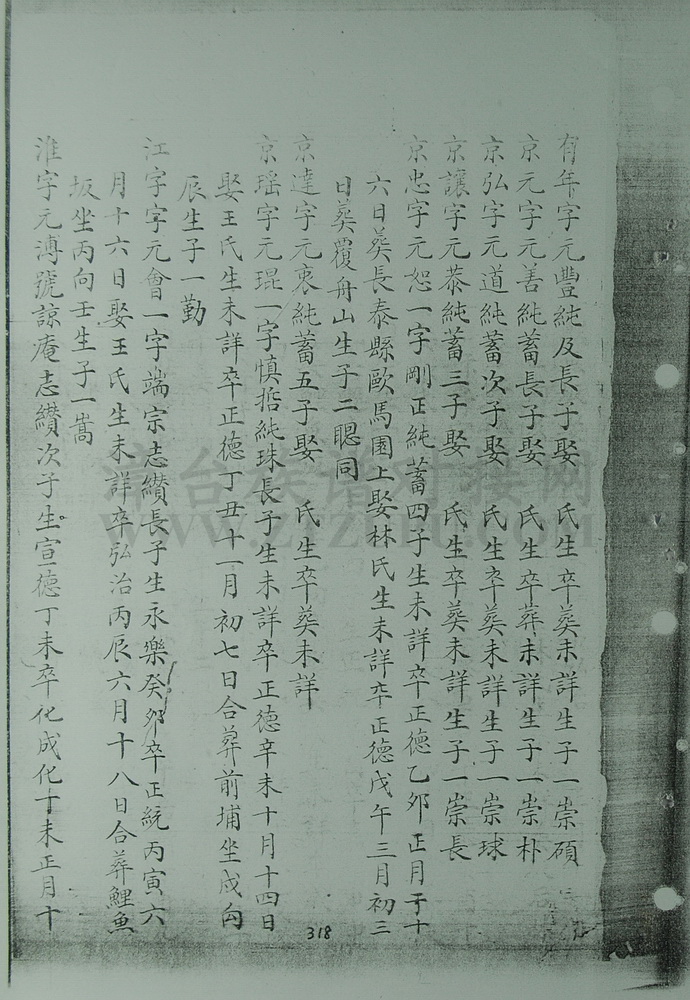 有年字元豐純及長子娶　氏生卒葬未詳生子一崇碩
京元字元善純蓄長子娶　氏生卒葬未詳生子一崇朴
京弘字元道純蓄次子娶　氏生卒葬未詳生子一崇球
京讓字元恭純蓄三子娶　氏生卒葬未詳生子一崇長
京忠字元恕一字剛正純蓄四子生未詳卒正德乙卯正月于十
六日葵長泰縣歐馬園上娶林氏生未詳卒正德戊午三月初三
日葵覆舟山生子二聰同
京達字元衷純蓄五子娶　氏生卒葵未詳
京瑶字元琨一字慎哲純珠長子生未詳卒正德辛未十月十四日
娶王氏生未詳卒正德丁丑十一月初七日合葬前埔坐戍向
辰生子一勤
江字字元會一字端宗志纘長子生永樂癸卯卒正統丙寅六
月十六日娶王氏生未詳卒弘治丙辰六月十八日合葬鯉魚
坂坐丙向壬生子一嵩
淮字元溥號諒庵志纘次子生宣德丁未卒化成化丁未正月十
318